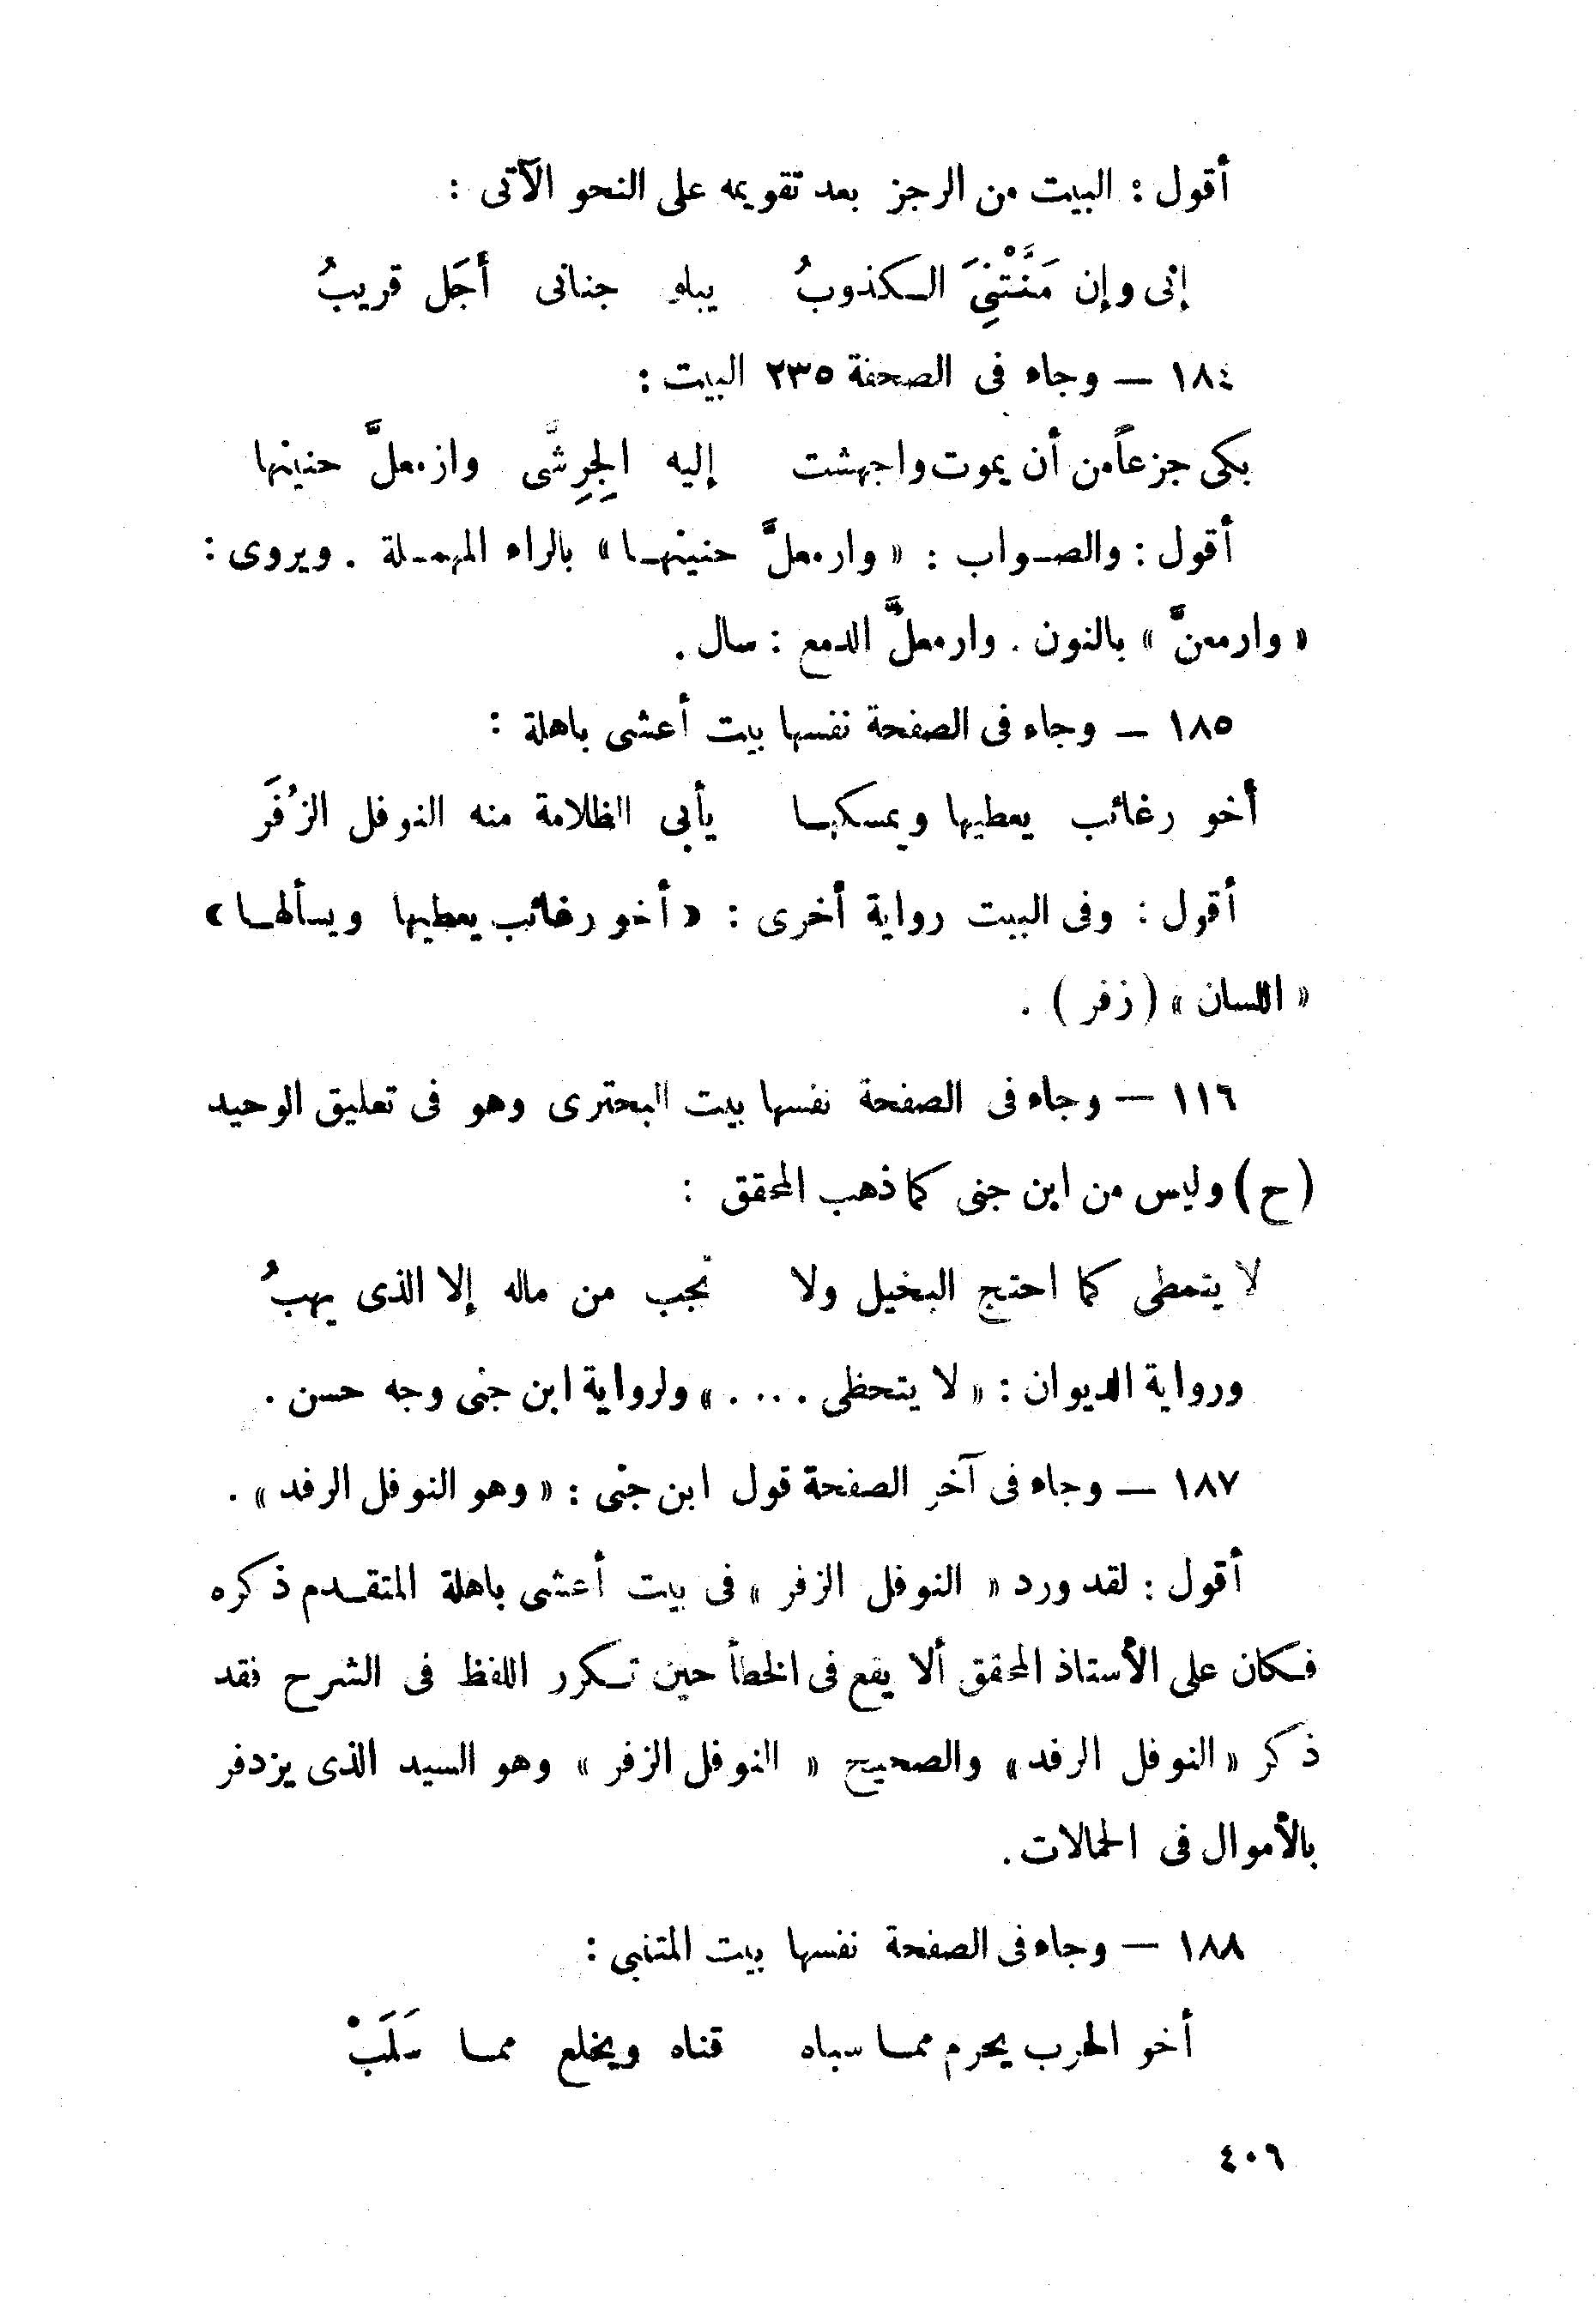 أقول : البيت من الرجز بعد تقويمه على النحو الآتى :
إنى وإن مَنَّتْنِىَ الكذوبُ يبلو جنانى أجَل قريبُ
١٨٤ — وجاء فى الصحفة ٢٣٥ البيت :
بكى جزعاً من أن يموت واجهشت إليه الجِرِشَّى وازمعلَّ حنينها
أقول : والصواب : « وارمعلَّ حنينها » بالراء المهملة . ويروى :
« وارمعنَّ » بالنون . وارمعلَّ الدمع : سال .
١٨٥ — وجاء فى الصفحة نفسها بيت أعشى باهلة :
أخو رغائب يعطيها ويمسكها يأبى الظلامة منه النوفل الزُفَر
أقول : وفى البيت رواية أخرى : « أخو رغائب يعطيها ويسألها »
« اللسان » ( زفر ) .
١١٦ — وجاء فى الصفحة نفسها بيت البحترى وهو فى تعليق الوحيد
( ح ) وليس من ابن جنى كما ذهب المحقق :
لا يتمطى كما احتج البخيل ولا تجب من ماله إلا الذى يهبُ
ورواية الديوان : « لا يتحظى . . . . » ولرواية ابن جنى وجه حسن .
١٨٧ — وجاء فى آخر الصفحة قول ابن جنى : « وهو النوفل الرفد » .
أقول : لقد ورد « النوفل الزفر » فى بيت أعشى باهلة المتقدم ذكره
فكان على الأستاذ المحقق ألا يقع فى الخطأ حين تكرر اللفظ فى الشرح فقد
ذكر « النوفل الرفد » والصحيح « النوفل الزفر » وهو السيد الذى يزدفر
بالأموال فى الحمالات .
١٨٨ — وجاء فى الصفحة نفسها بيت المتنبى :
أخو الحرب يحرم مما سباه قناه ويخلع مما سَلَبْ
٤٠٦